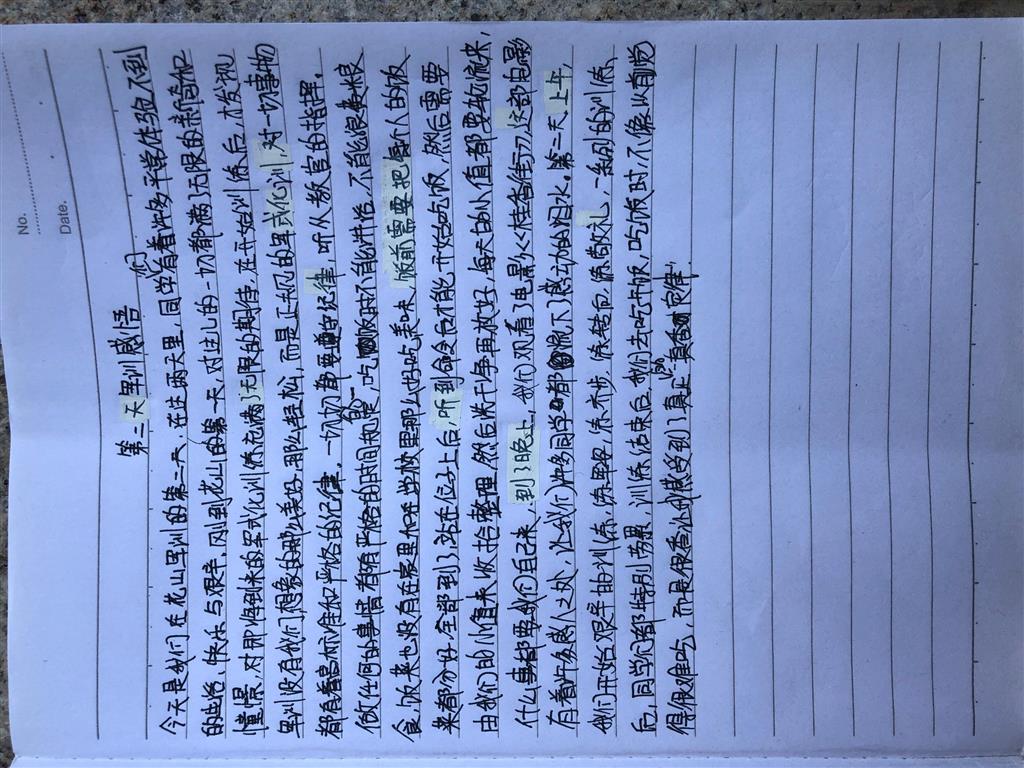 No.
Date.
第二天军训感悟
今天是我们在龙山军训的第二天、在这两天里,同学们有着许多平常体验不到
的生活,快乐与艰辛。刚到龙山的第一天,对这儿的一切都满了无限的新奇和
憧憬,对那将到来的军式化训练充满了无限的期待,在开始训练后,才发现
军训没有我们想象的那么美好,那么轻松,而是正规的军式化训,对一切事物
都有着高标准和严格的记律。一切都要遵守纪律,听从教官的指挥。
做任何的事情都有严格的时间规定,吃饭时不能讲话,不能浪费粮
食,饭菜也没有在家里和学校里那么好吃美味,饭前需要把每个人的饭
菜都分好,全部到了,站在位子上后,听到命令才能开始吃饭,然后需要
由我们的小值来收拾整理,然后洗干净再放好,每天的小值都要轮流来,
什么事都要我们自己来,到了晚上,我们观看了电影《桂香街》,这部电影
有着许多感人之处,让我们许多同学都流下了感动的泪水。第二天上午,
我们开始艰辛的训练,练军姿,练齐步,练转向,练敬礼,一系列的训练、
后,同学们都特别劳累,训练结束后,我们去吃午饭,吃饭时,不像以前觉
得很难吃,而是很香,此时感受到了真正的